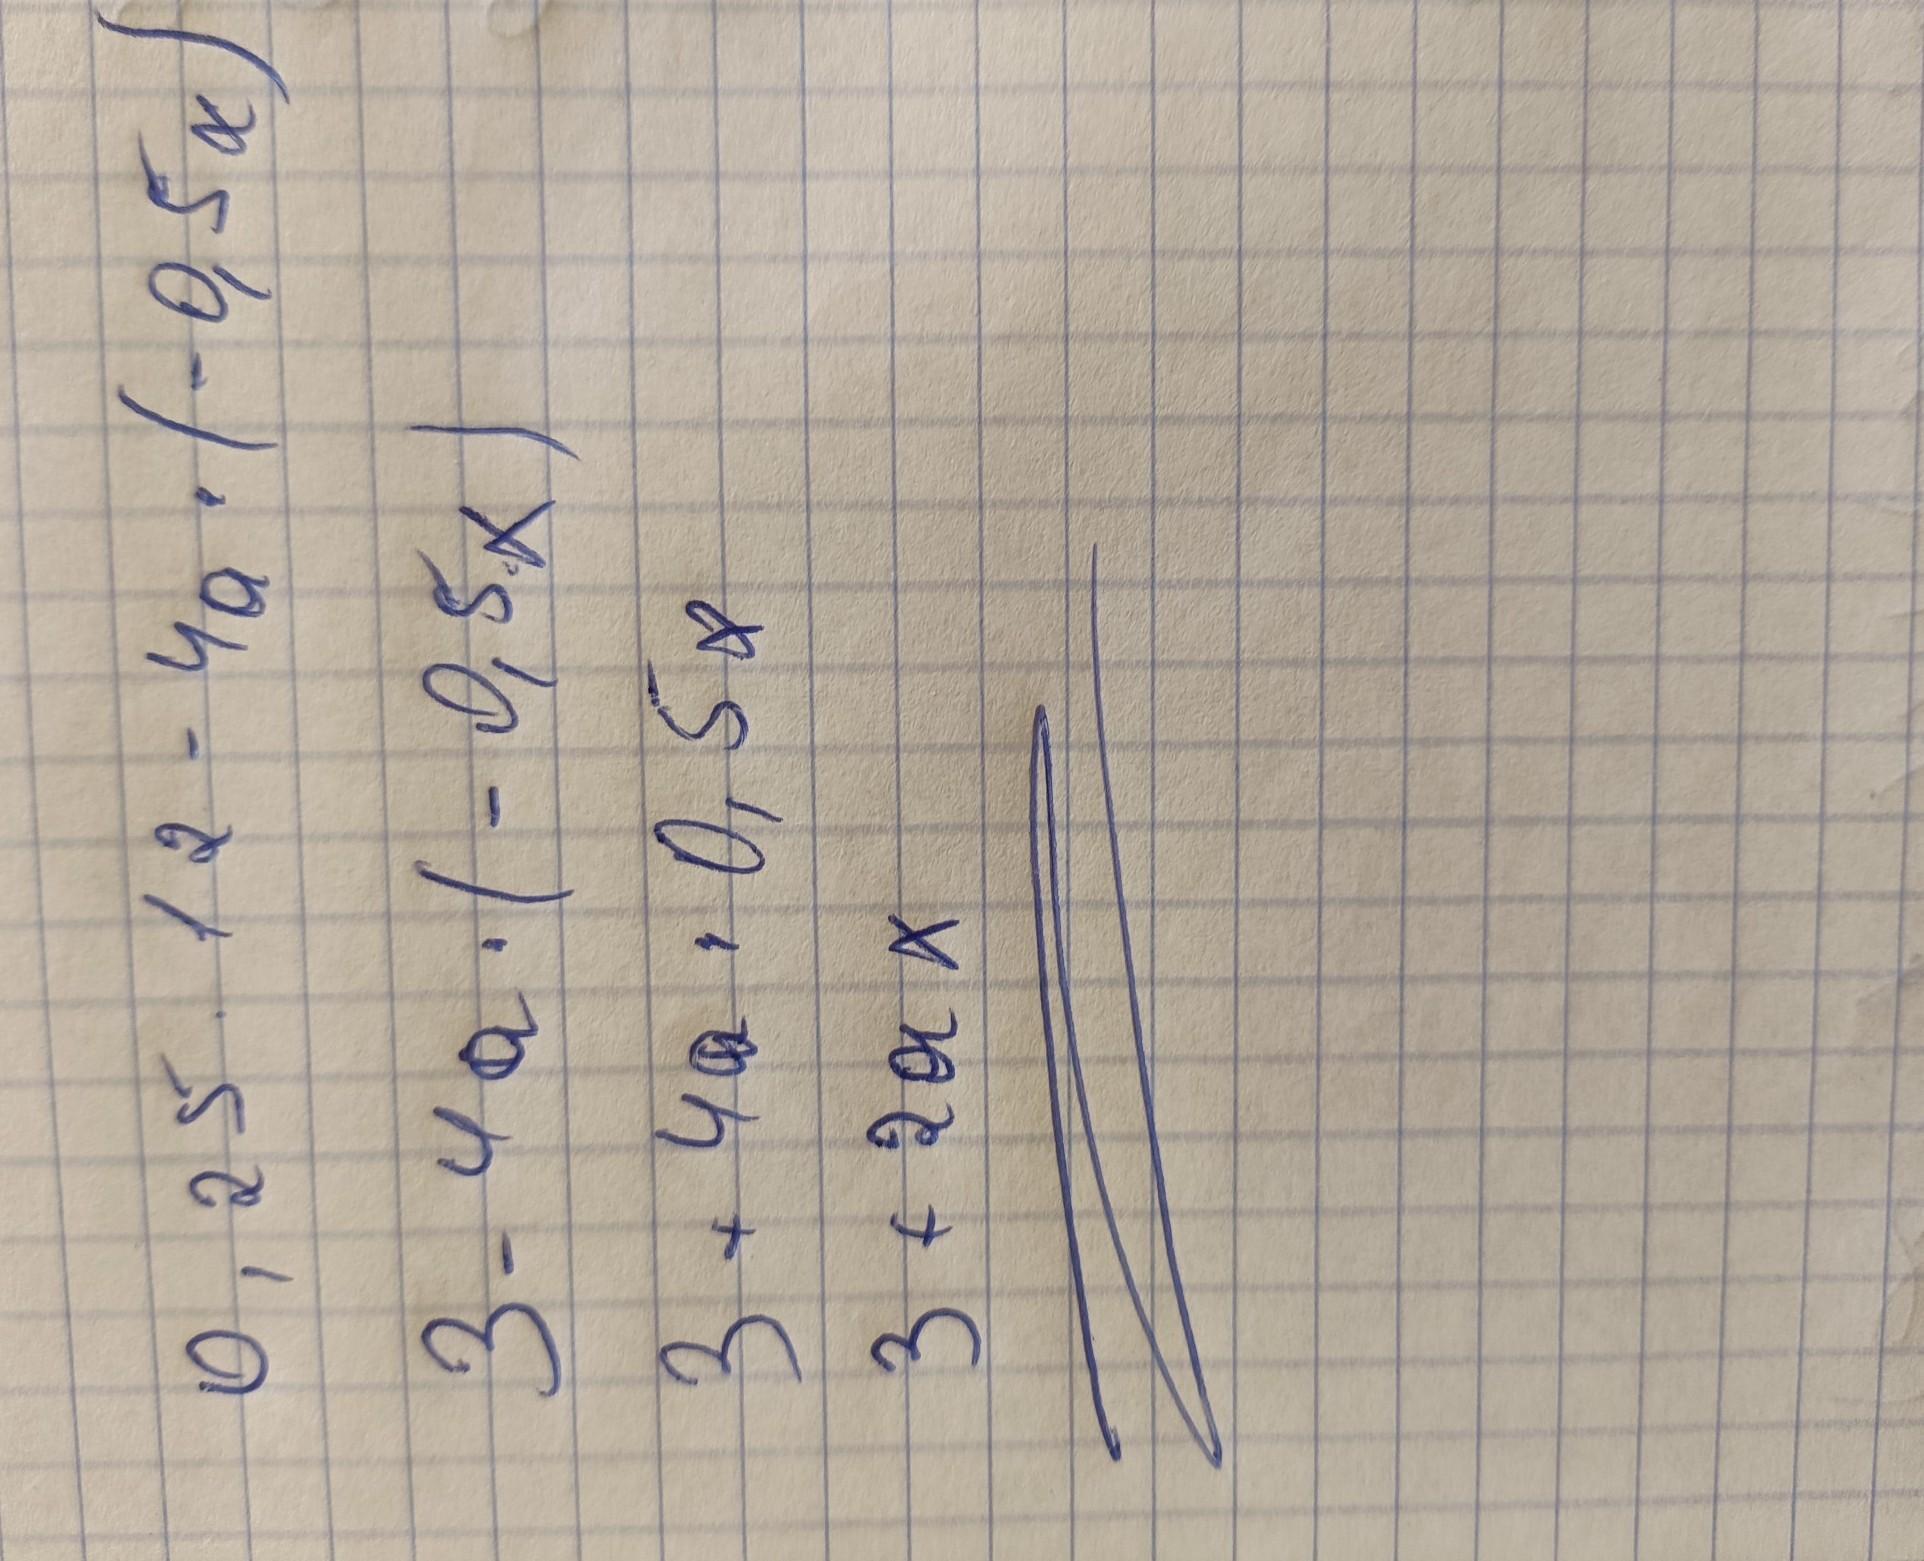 0,25 · 12 - 4a · (-0,5x)
3 - 4a · (-0,5x)
3 + 4a · 0,5x
3 + 2ax